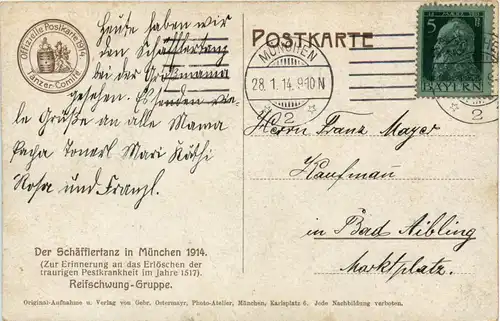 Offizielle Postkarte 1914
Tänzer-Comité
Heute haben wir
den Schäfflertanz
bei der Großmama
gesehen. Es senden vie-
le Grüße an alle Mama
Papa Tonerl Mari Käthi
Rosa und Franzl.
Der Schäfflertanz in München 1914.
(Zur Erinnerung an das Erlöschen der
traurigen Pestkrankheit im Jahre 1517).
Reifschwung-Gruppe.
POSTKARTE
MÜNCHEN
28. 1. 14. 9-10 N
2
5
BAYERN
2
Herrn Franz Mayer
Kaufman
in Bad Aibling
Marktplatz.
Original-Aufnahme u. Verlag von Gebr. Ostermayr, Photo-Atelier, München, Karlsplatz 6. Jede Nachbildung verboten.